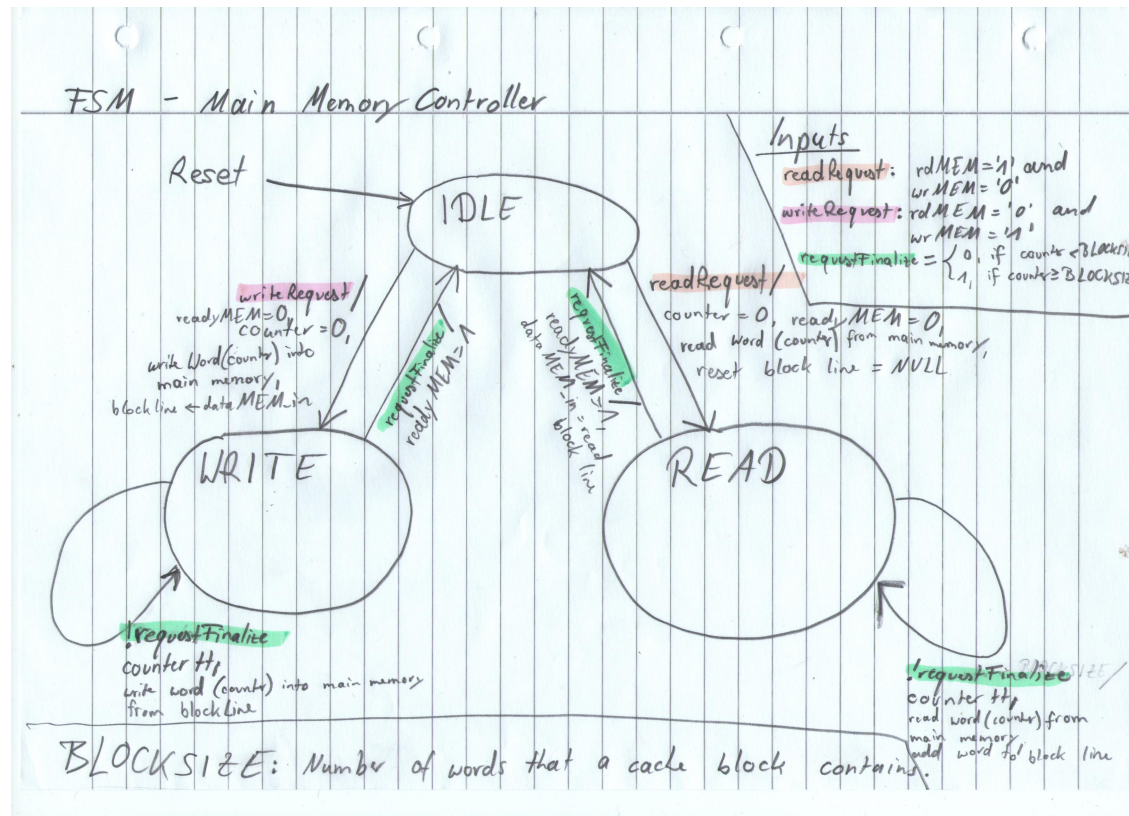 FSM - Main Memory Controller
Inputs
readRequest: rdMEM='1' and
wrMEM = '0'
writeRequest: rdMEM='0' and
wrMEM = '1'
requestFinalize = { 0, if counter < BLOCKSI
1, if counter ≥ BLOCKSIZ
Reset
IDLE
writeRequest/
readyMEM=0,
counter=0,
write Word(counter) into
main memory,
blockline ← dataMEM_in
requestFinalize/
readyMEM=1
requestFinalize/
readyMEM=1,
dataMEM_in = read
block line
readRequest/
counter = 0, readyMEM=0,
read word (counter) from main memory,
reset block line = NULL
WRITE
READ
!requestFinalize
counter ++,
write word (counter) into main memory
from blockLine
!requestFinalize
BLOCKSIZE/
counter ++,
read word(counter) from
main memory
add word to block line
BLOCKSIZE: Number of words that a cache block contains.